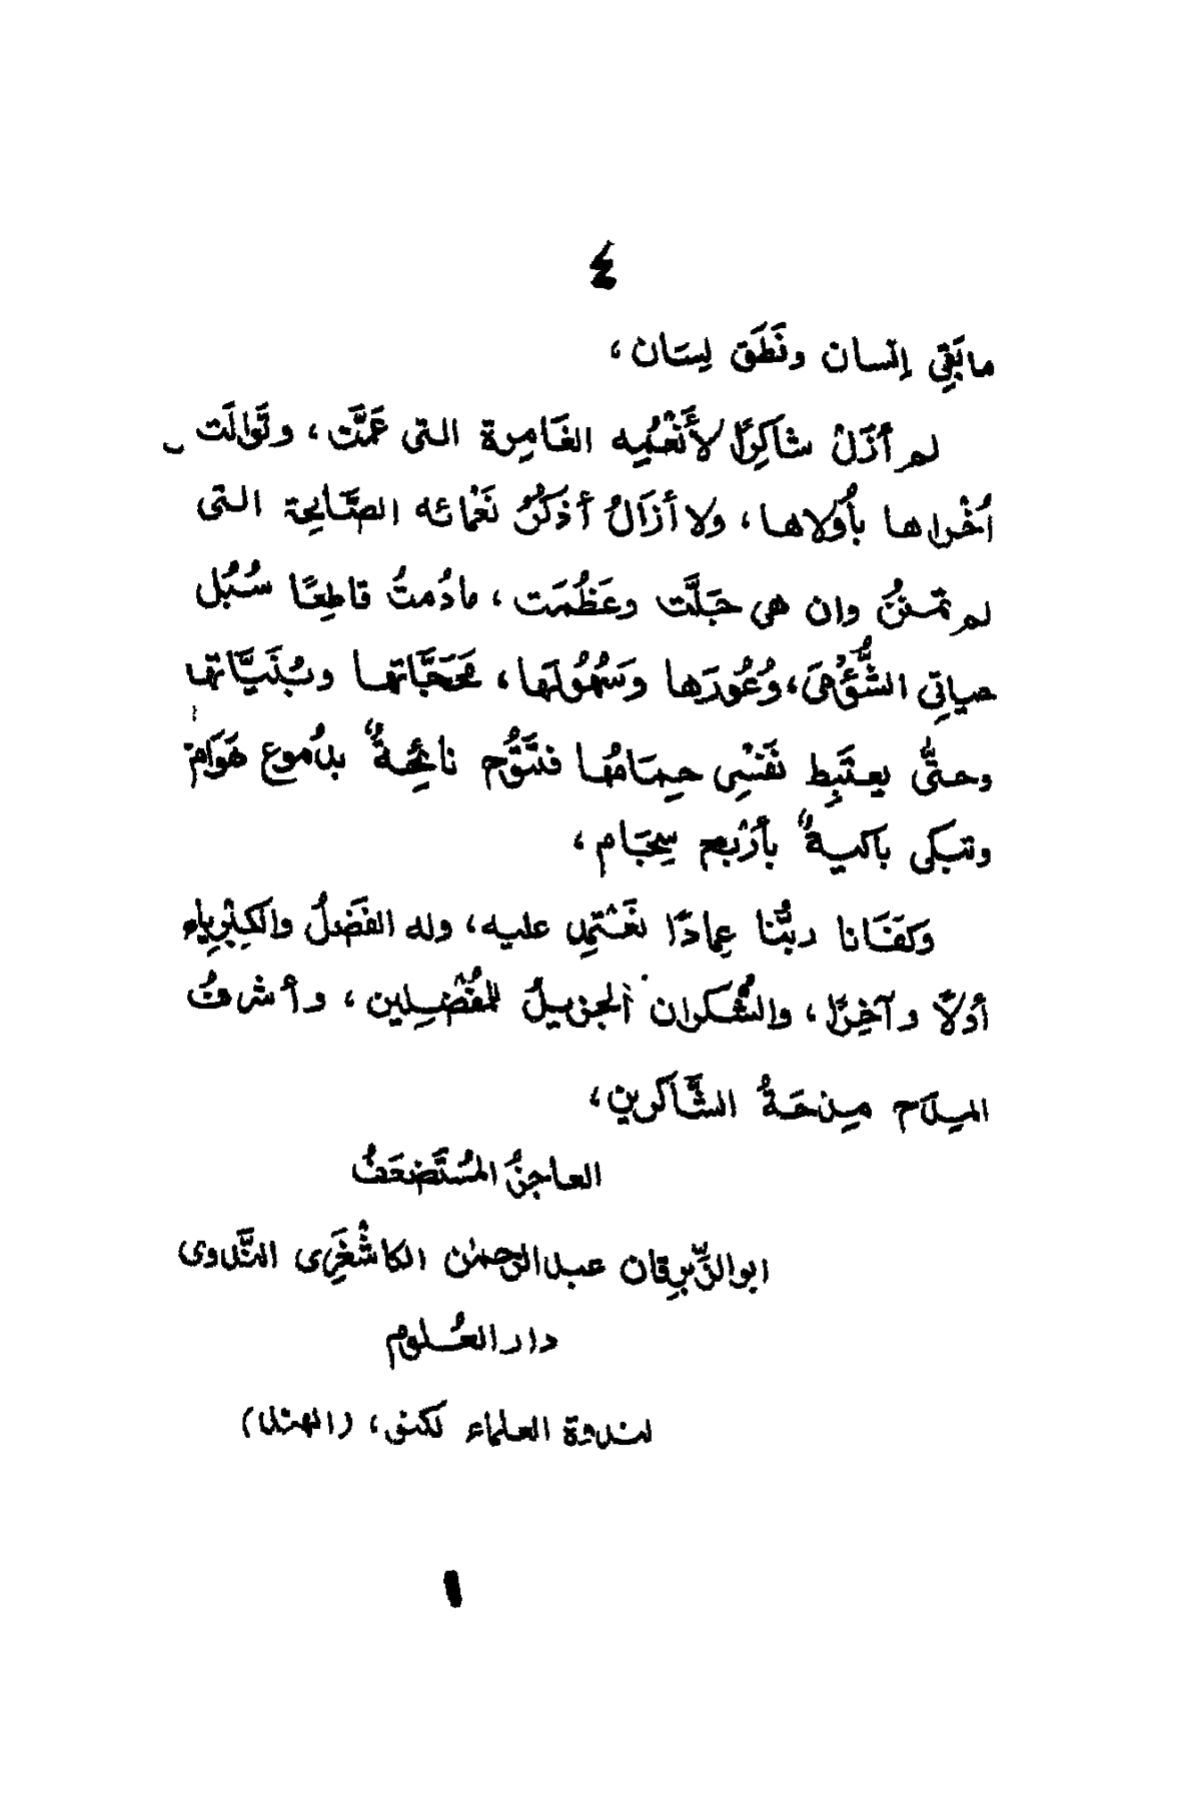 ٤
مابَقِي إنسان ونَطَق لِسَان،
لم أزَلْ شاكِرًا لأَنْعُمِه الغَامِرة التى عَمَّت، وتَوَالَت
أُخْراها بأُولاها، ولا أزَالُ أذكُرُ نَعْمائه الصَّالِحة التى
لم تمنن وان هى جَلَّت وعَظُمَت، مادُمتُ قاطِعًا سُبُل
حياتِي الشُّؤْمىَ، وُعُورَها وَسُهُولَها، مَحَجَّاتها وبُنَيَّاتها
وحتىُّ يعتَبِط نَفْسِى حِمَامُها فتَقُوم نائحِةٌ بدُموع هَوَامٍ
وتبكى باكيةٌ بأَرْبع سِجَام،
وَكفَانا ربُّنا عِمادًا نَعْتمِد عليه، وله الفَضلُ والكِبْرِياء
أولاً وآخِرًا، والشُّكران الجزيلُ للمُفْضِلين، وأشرفُ
المِدَاح مِدحَةُ الشَّاكرين،
العاجزُ المُسْتَضعَفُ
ابوالزِّبرِقان عبدالرحمٰن الكاشْغَرِى النَّدوى
دارالعُلوم
لندوة العلماء لكنؤ، (الهند)